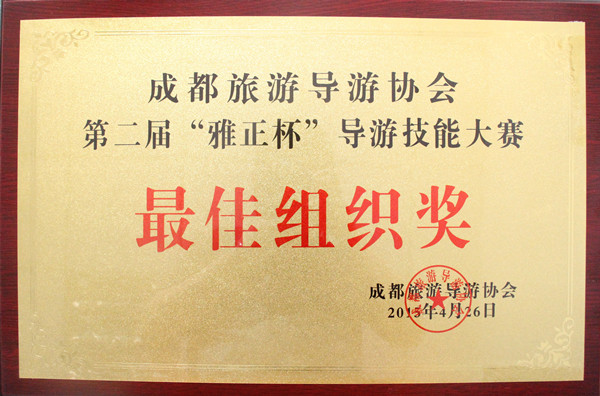 成都旅游导游协会
第二届“雅正杯”导游技能大赛
最佳组织奖
成都旅游导游协会
2015年4月26日